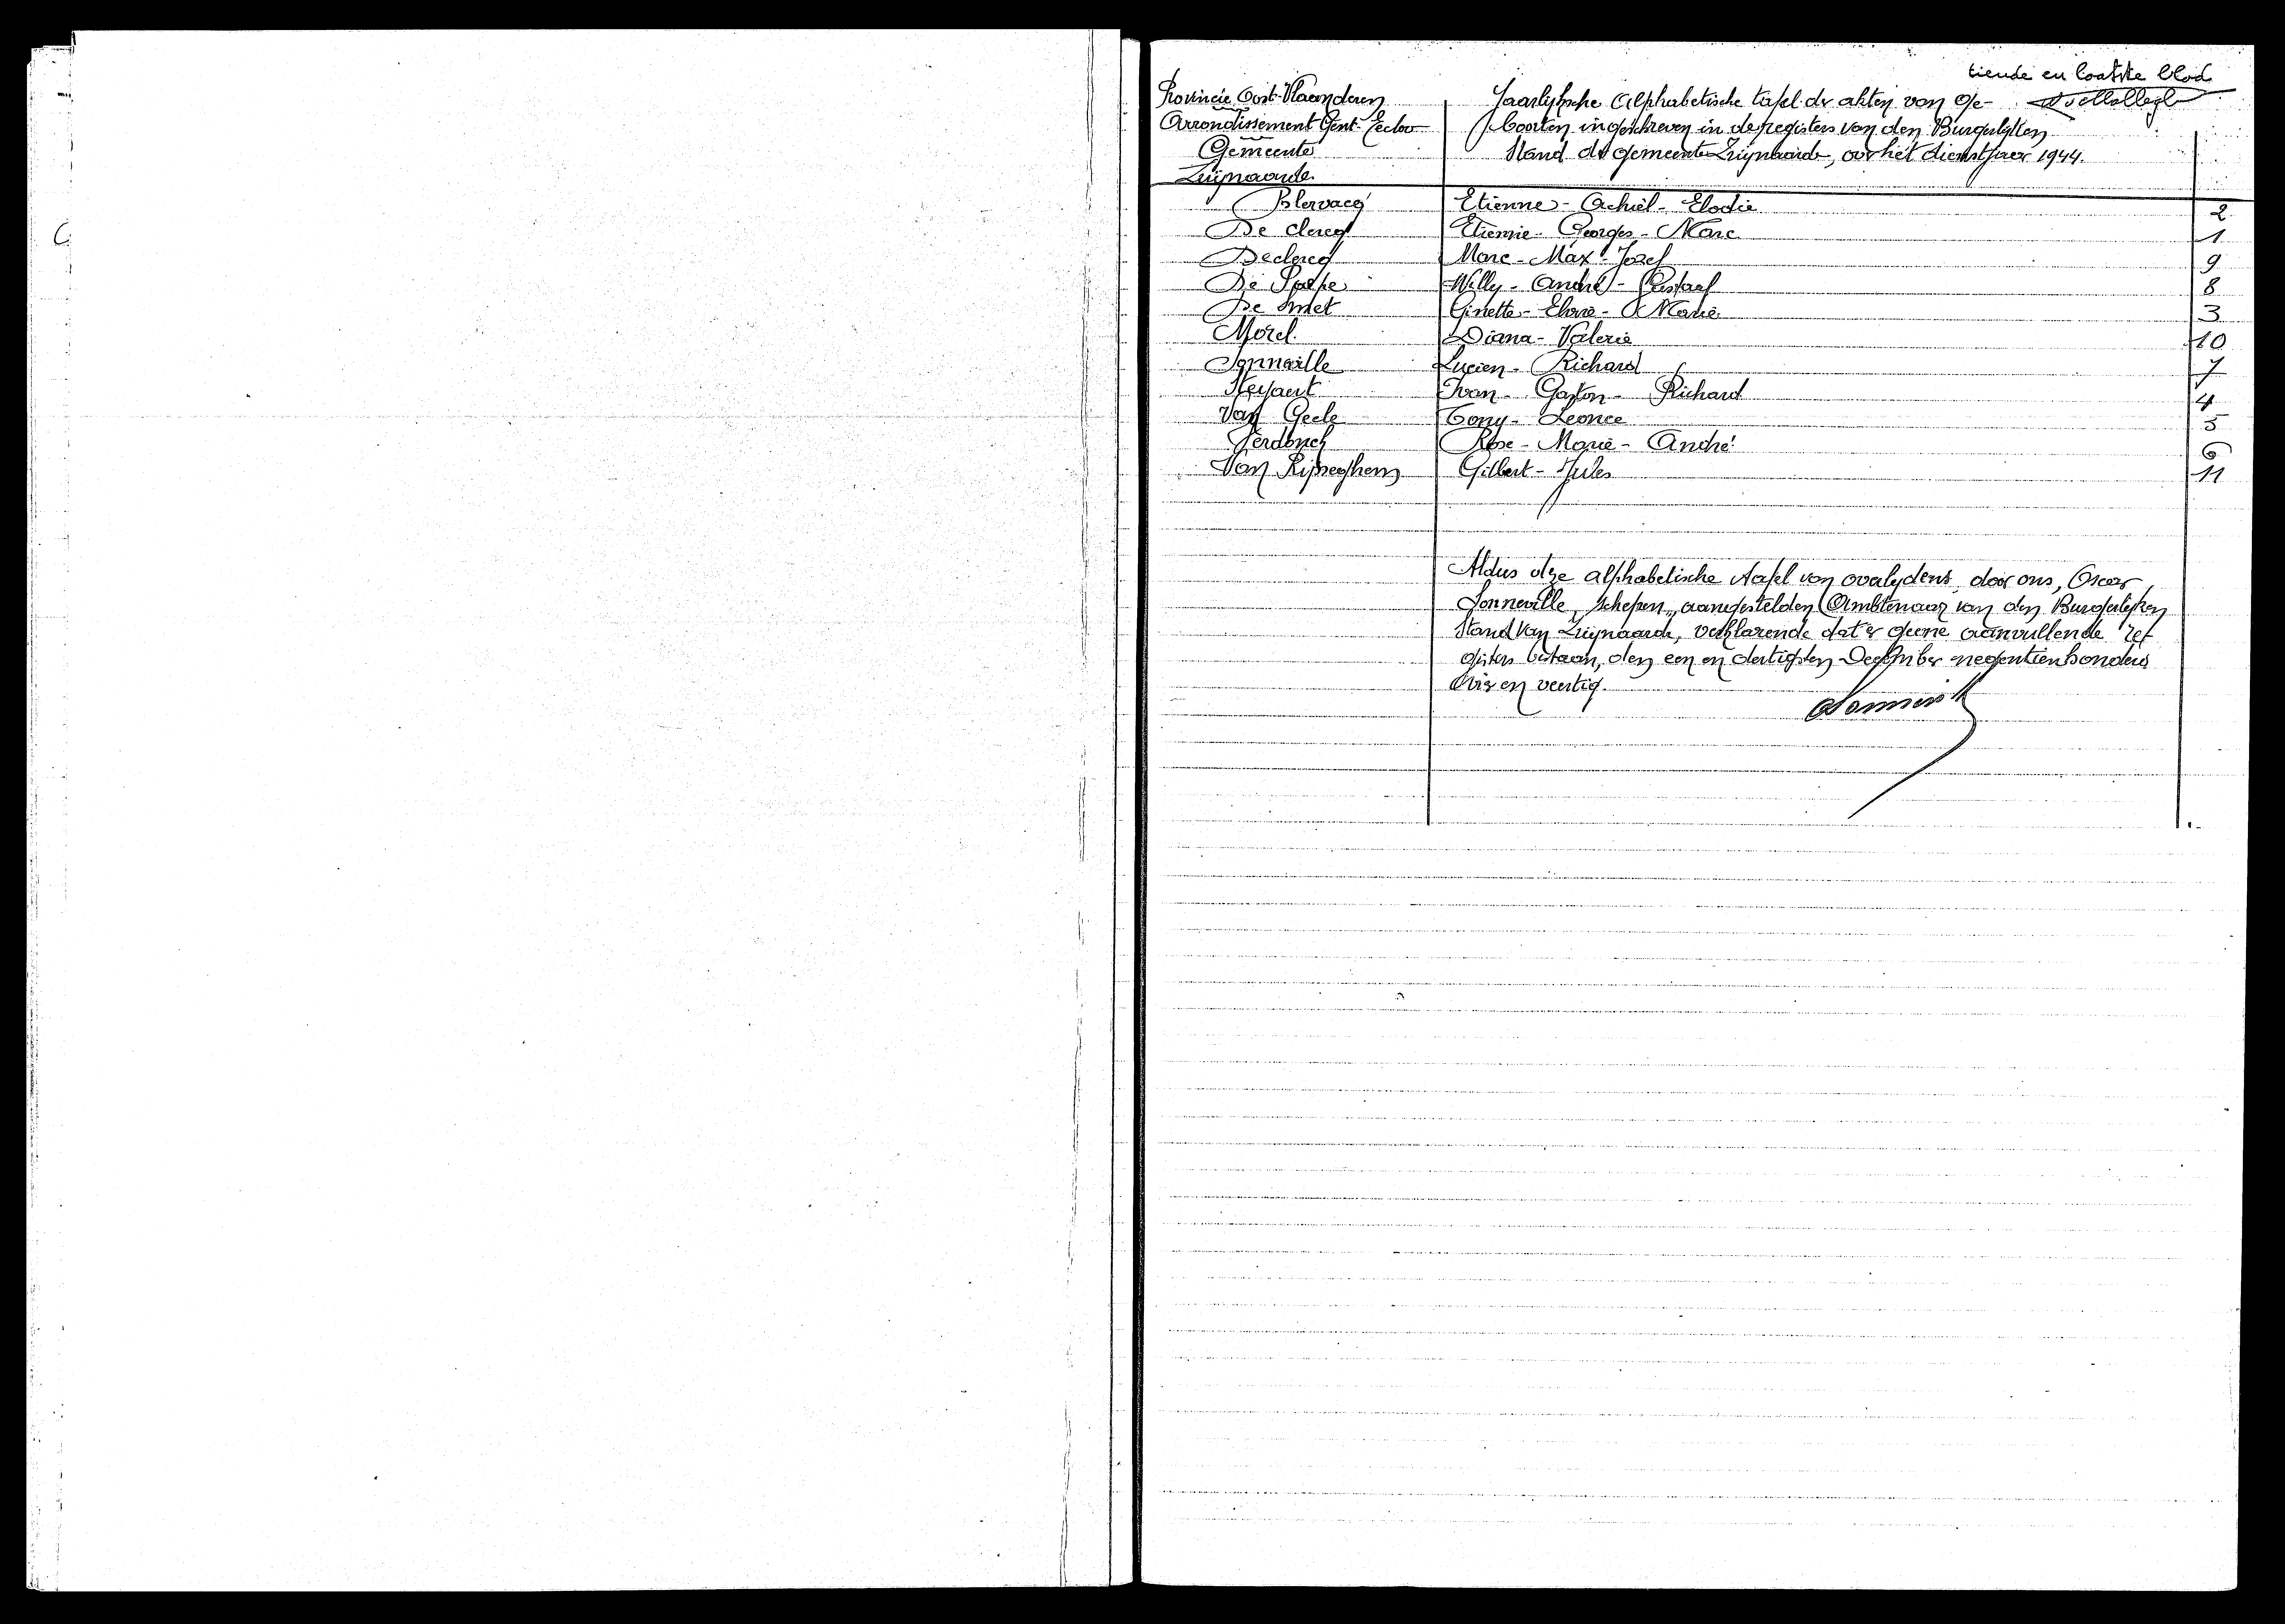 tiende en laatste blad
Provincie Oost-Vlaanderen
Arrondissement Gent-Eecloo
Gemeente
Zwijnaarde
Jaarlijksche Alphabetische tafel der akten van ge-
boorten ingeschreven in de registers van den Burgerlijken
Stand der gemeente Zwijnaarde, over het dienstjaar 1944.
Blervacq Etienne - Achiel - Elodie 2
De Clercq Etienne - Georges - Marc 1
Declercq Marc - Max - Jozef 9
De Willy - André - Gustaaf 8
De Smet Ginette - - Marie 3
Morel Diana - Valerie 10
Lucien - Richard 7
Ivan - Gaston - Richard 4
Van Geele Tony - Leonce 5
Verdonck Rose - Marie - André 6
Van Gilbert - Jules 11
Aldus deze alphabetische tafel van overlydens, door ons, Oscar
Sonneville, Schepen, aangestelden Ambtenaar van den Burgerlijken
Stand van Zwijnaarde, verklarende dat er geene aanvullende re-
gisters bestaan, den een en dertigsten December negentienhonderd
vier en veertig.